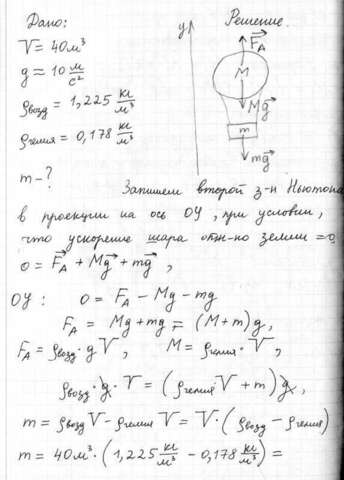 Дано:
Решение.
V = 40 м³
g ≈ 10 м/с²
ρвозд = 1,225 кг/м³
ρгелия = 0,178 кг/м³
m - ?
y
F⃗A
M
Mg⃗
m
mg⃗
Запишем второй з-н Ньютона
в проекции на ось OY, при условии,
что ускорение шара отн-но земли = 0.
0 = F⃗A + Mg⃗ + mg⃗ ,
OY : 0 = FA - Mg - mg
FA = Mg + mg = (M + m) g,
FA = ρвозд · g V, M = ρгелия · V,
ρвозд · g · V = (ρгелия V + m) g,
m = ρвозд V - ρгелия V = V · (ρвозд - ρгелия)
m = 40 м³ · (1,225 кг/м³ - 0,178 кг/м³) =